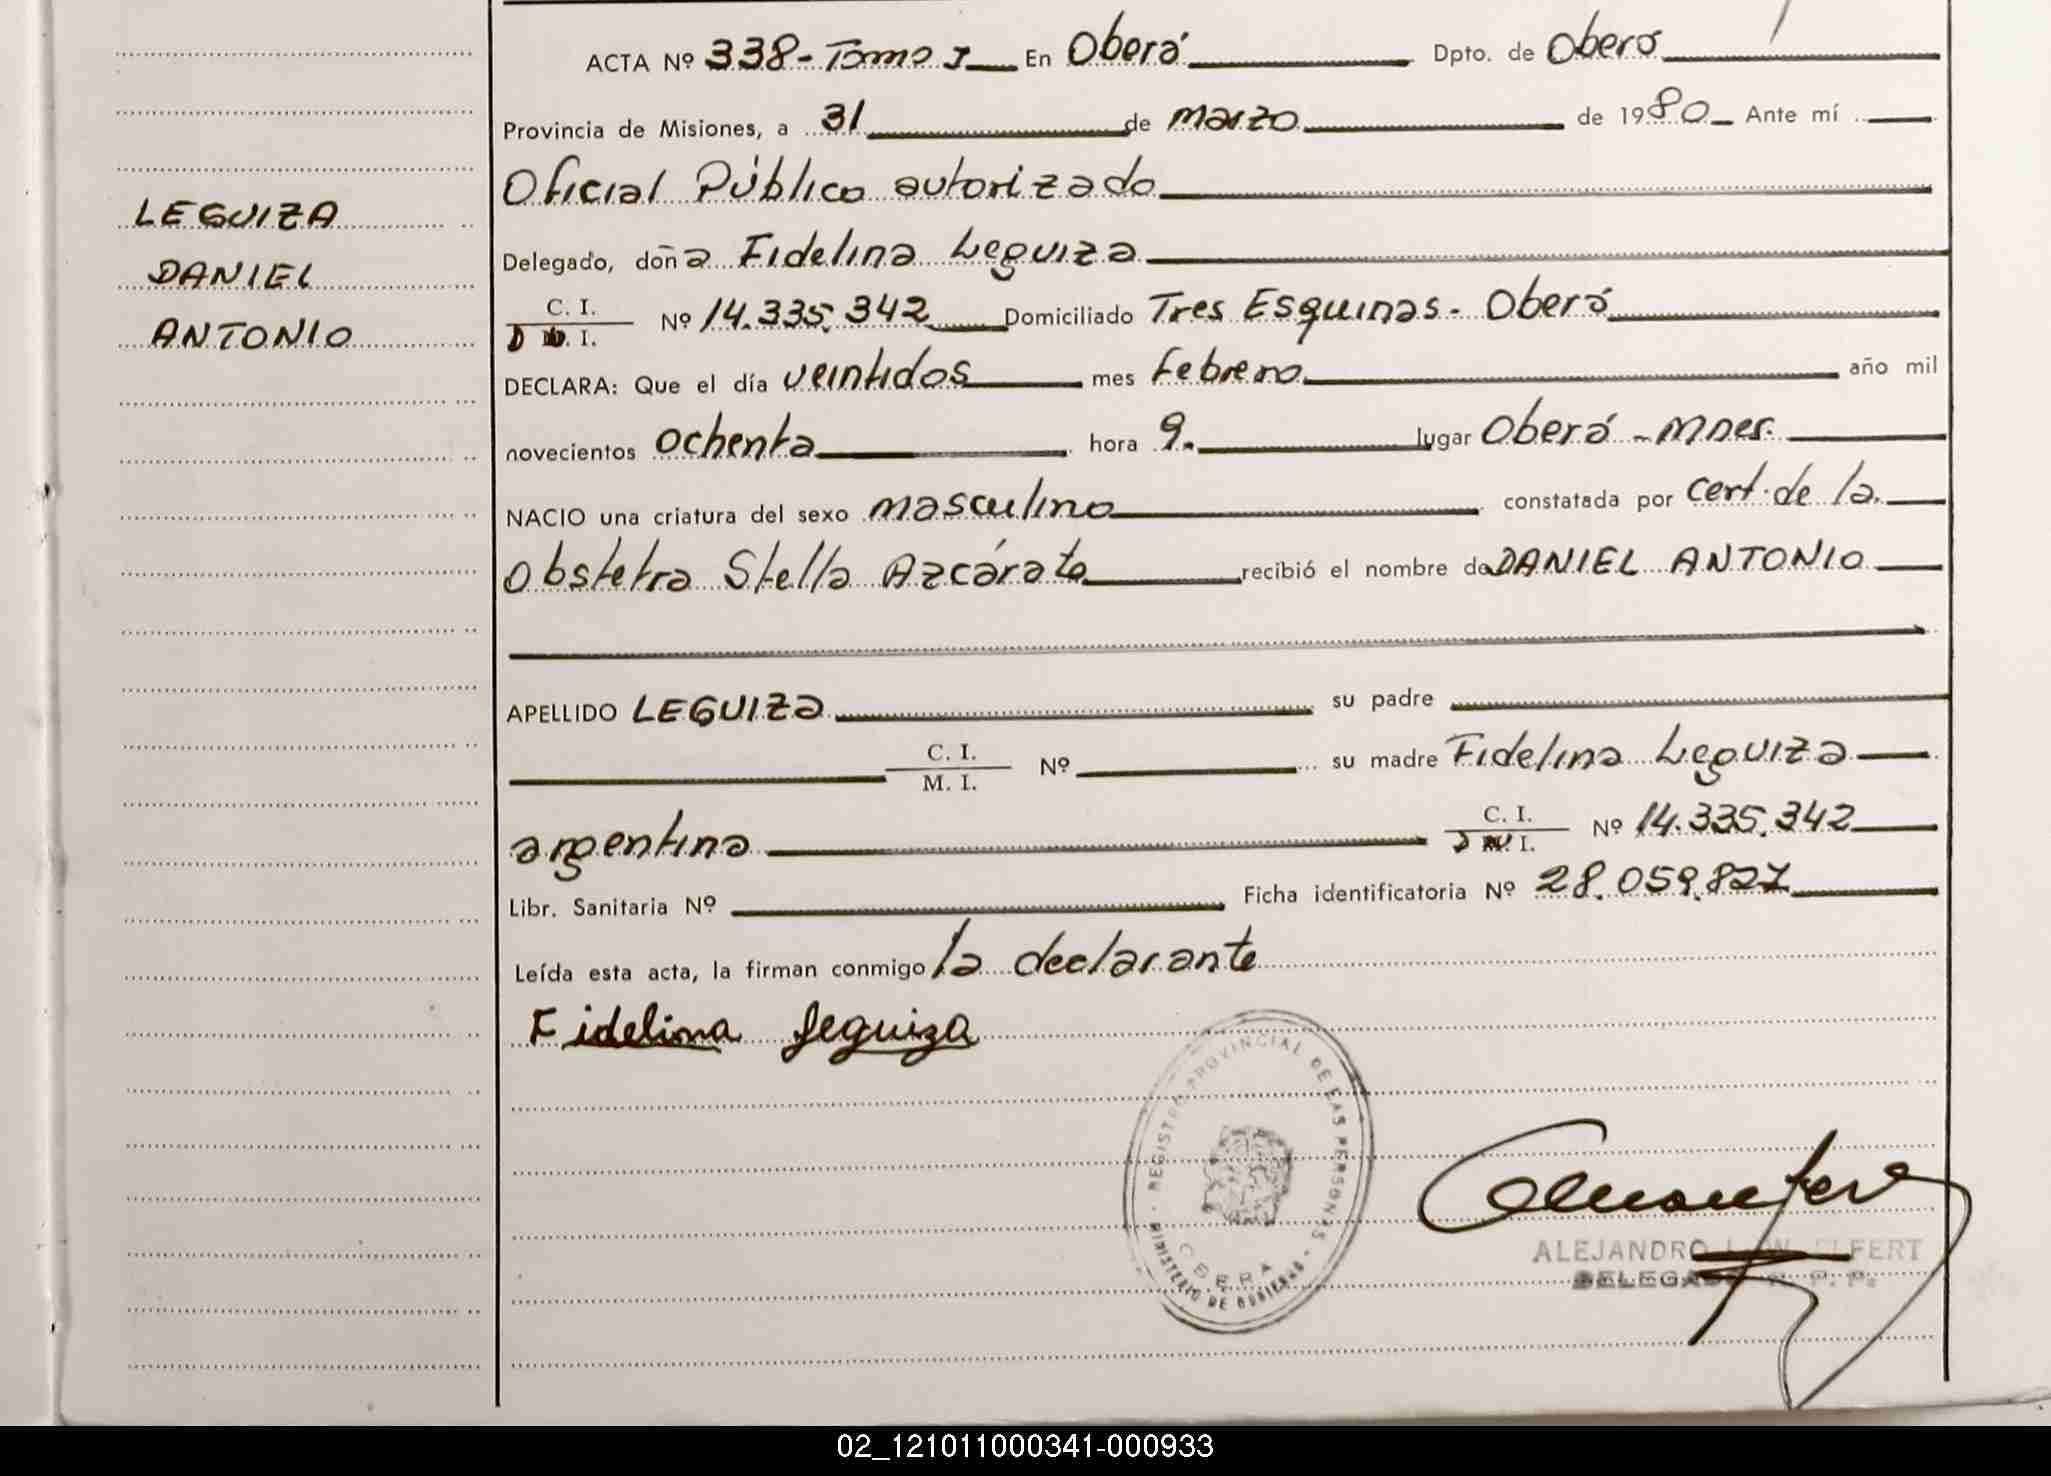 ACTA Nº 338 - Tomo I En Oberá Dpto. de Oberá
Provincia de Misiones, a 31 de marzo de 1980 Ante mí
Oficial Público autorizado
Delegado, doña Fidelina Leguiza
C. I.
D. I. Nº 14.335.342 Domiciliado Tres Esquinas - Oberá
DECLARA: Que el día veintidos mes febrero año mil
novecientos ochenta hora 9. lugar Oberá - Mnes.
NACIO una criatura del sexo masculino constatada por cert. de la
Obstetra Stella Azcárate recibió el nombre de DANIEL ANTONIO
APELLIDO LEGUIZA su padre
C. I.
M. I. Nº su madre Fidelina Leguiza
argentina C. I. D. I. Nº 14.335.342
Libr. Sanitaria Nº Ficha identificatoria Nº 28.059.827
Leída esta acta, la firman conmigo la declarante
Fidelina Leguiza
LEGUIZA
DANIEL
ANTONIO
REGISTRO PROVINCIAL DE LAS PERSONAS
MINISTERIO DE GOBIERNO
OBERA
ALEJANDRO
DELEGADO
02_121011000341-000933